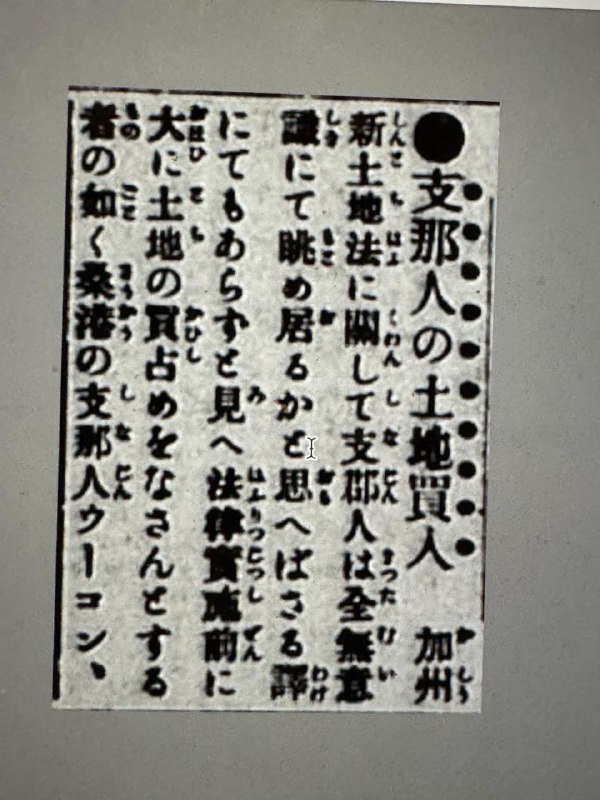 ●支那人の土地買入　加州
新土地法に關して支郡人は全無意
識にて眺め居るかと思へばさる譯
にてもあらずと見へ法律實施前に
大に土地の買占めをなさんとする
者の如く桑港の支那人ウーコン、